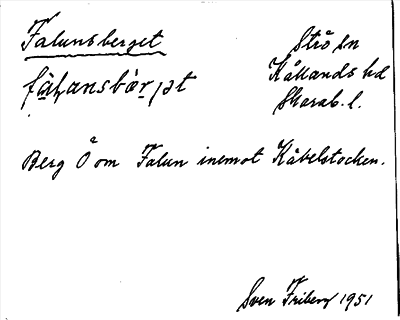 Falunsberget
Strö sn
Kållands hd
Skarab. l.
Berg Ö om Falun inemot Kåbelstocken.
Sven Friberg 1951